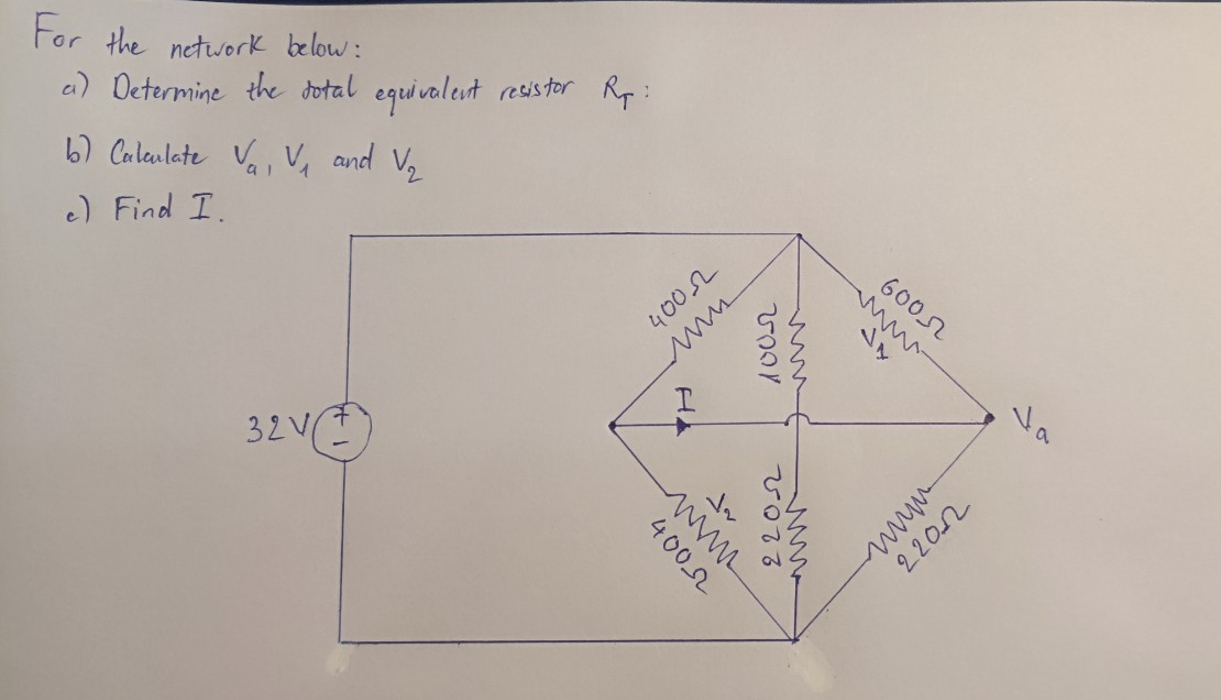 For the network below:
a) Determine the total equivalent resistor R_T:
b) Calculate V_a, V_1 and V_2
c) Find I.
400Ω
100Ω
600Ω
V_1
32V
+
-
I
V_a
V_2
400Ω
220Ω
220Ω